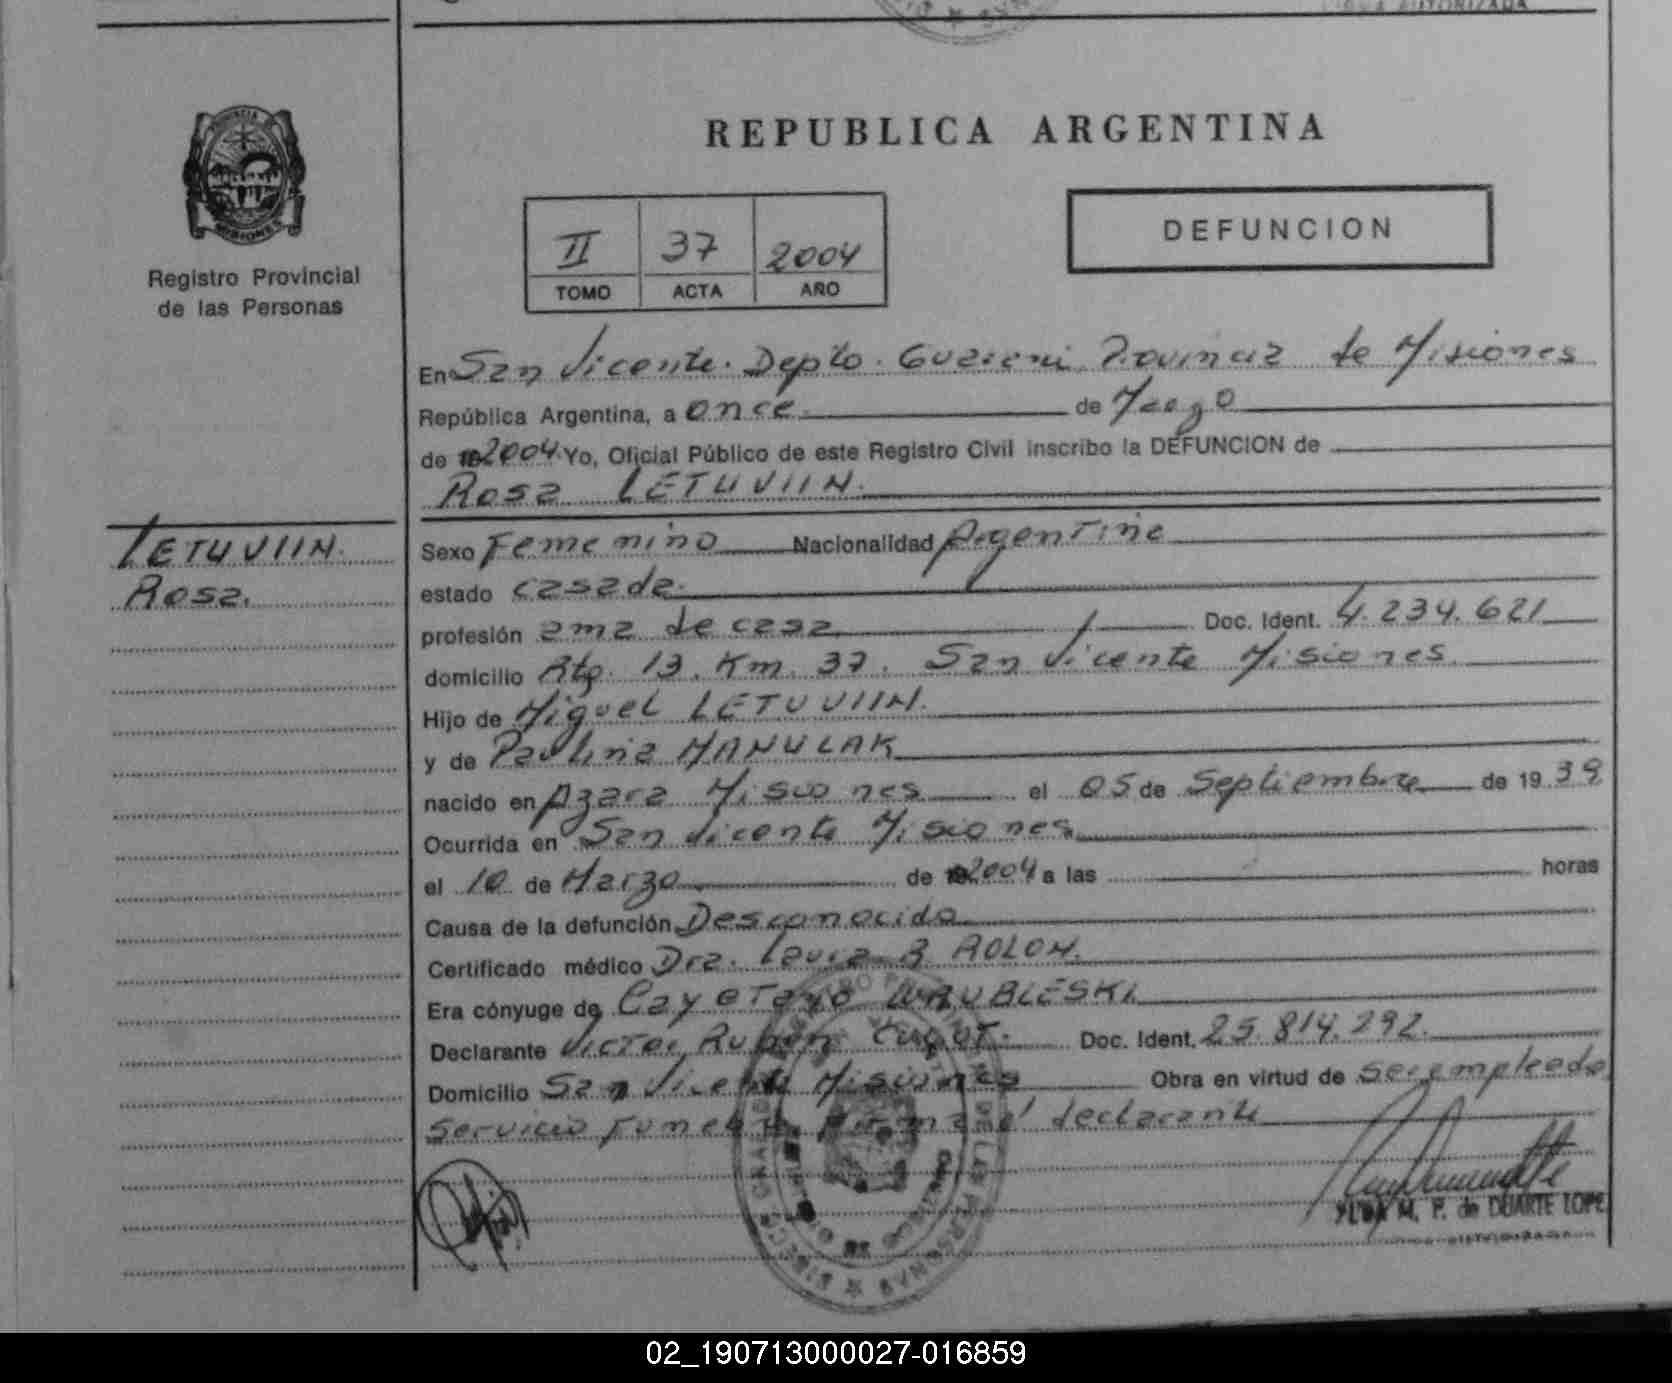 REPUBLICA ARGENTINA
PROVINCIA
MISIONES
Registro Provincial
de las Personas
II 37 2004
TOMO ACTA AÑO
DEFUNCION
En San Vicente. Depto. Guarani Provincia de Misiones
República Argentina, a once de Marzo
de 2004 Yo, Oficial Público de este Registro Civil inscribo la DEFUNCION de
Rosa LETUVIIN.
LETUVIIN.
Rosa.
Sexo Femenino Nacionalidad Argentina
estado casada.
profesión ama de casa Doc. Ident. 4.234.621
domicilio Rta. 13. Km. 37. San Vicente Misiones
Hijo de Miguel LETUVIIN.
y de Paulina MANULAK
nacido en Azara Misiones el 05 de Septiembre de 1939
Ocurrida en San Vicente Misiones
el 10 de Marzo de 2004 a las horas
Causa de la defunción Desconocida
Certificado médico Dra. Laura B ROLON.
Era cónyuge de Cayetano WRUBLESKI
Declarante Victor Ruben Doc. Ident. 25.814.292.
Domicilio San Vicente Misiones Obra en virtud de ser empleado
Servicio Funebre declarante
M. P. de DUARTE LOPE
02_190713000027-016859